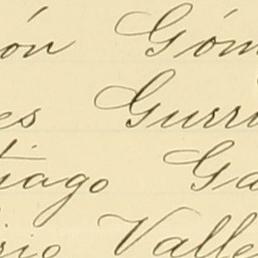 ón Góm
es Gurri
tiago Ga
rio Valle